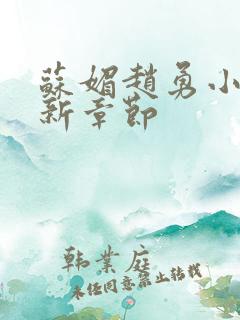 蘇媚趙勇小
新章節
韩業庭
未经同意禁止转载